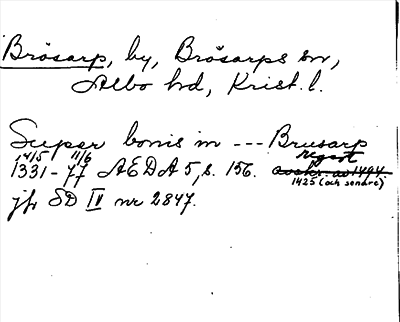 Brösarp, by, Brösarps sn,
Albo hd, Krist. l.
Super bonis in --- Brusarp
14/5 11/6 regest
1331-77 AEDA 5, s. 156. avskr. av 1494.
1425 (och senare)
jfr SD IV nr 2847.